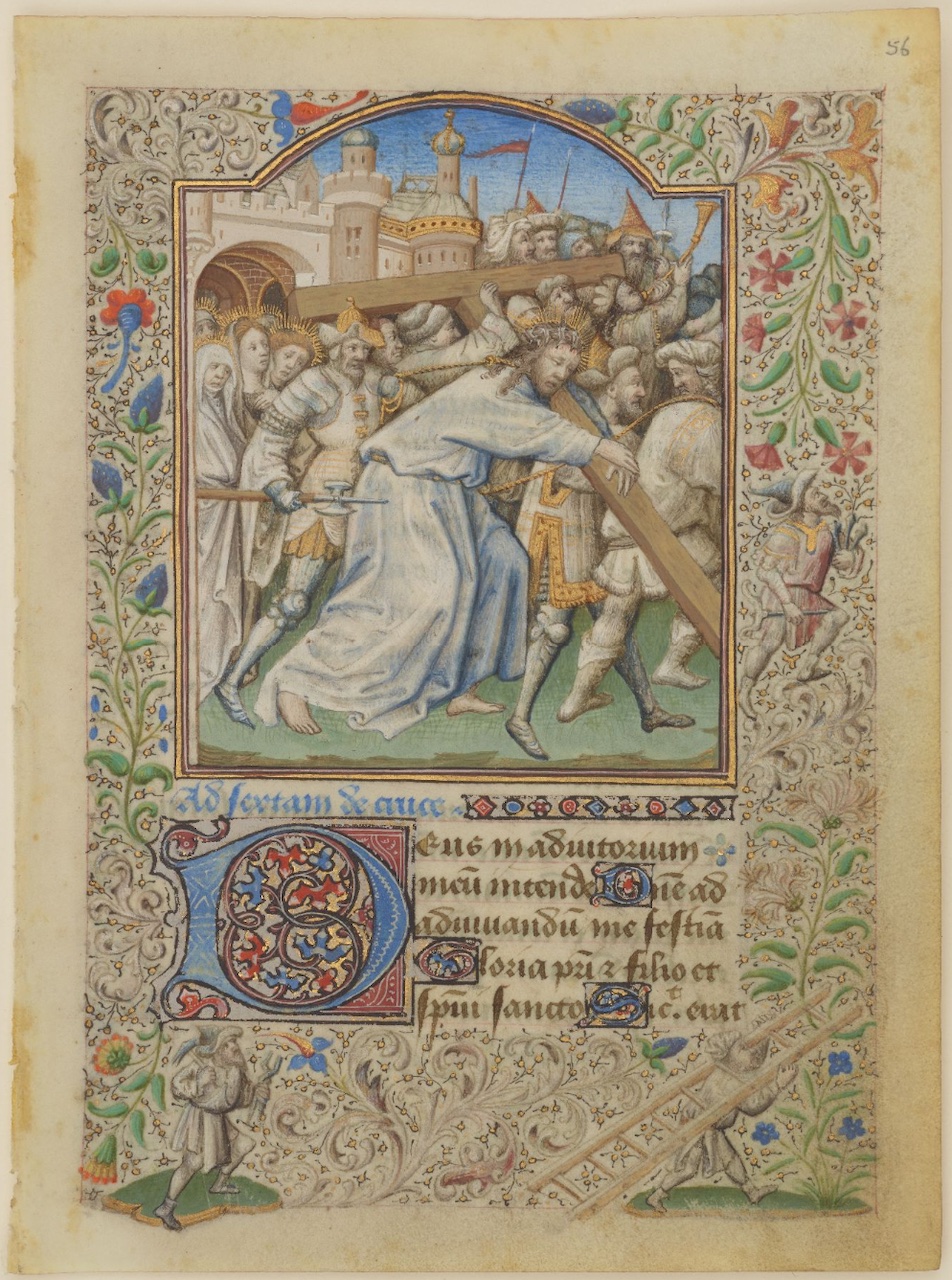 56
Ad sextam de cruce.
Deus in adiutorium
meū intende Dn̄e ad
adiuuandū me festiā
Gloria pr̄i ⁊ filio et
spūi sancto Sic. erat